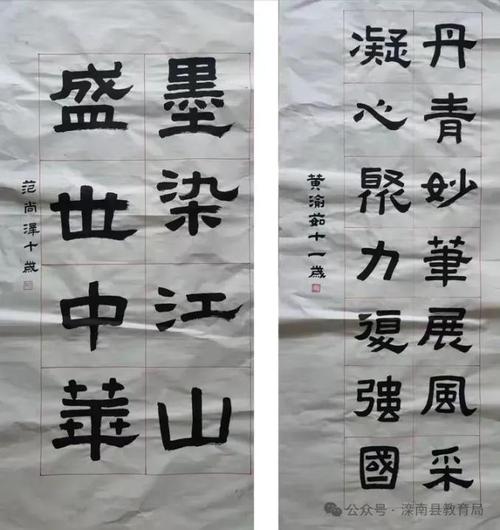 墨染江山
盛世中華
范尚泽十歲
丹青妙筆展風采
凝心聚力復強國
黄渝茹十一歲
公众号·滦南县教育局